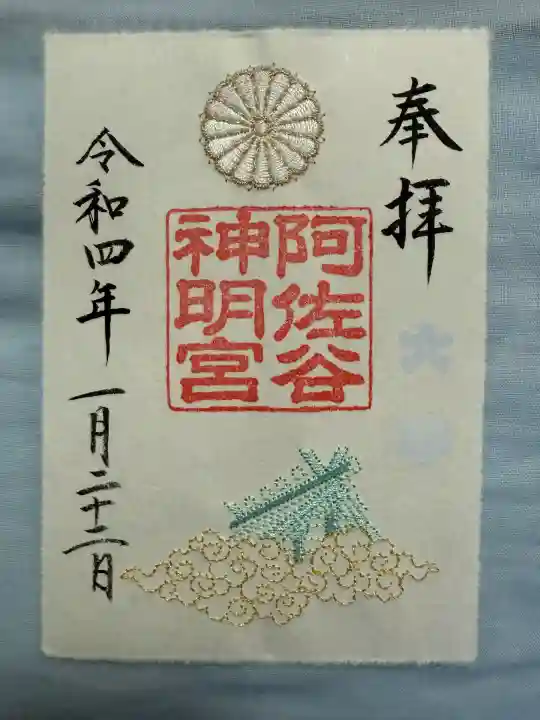 奉拝
阿佐谷
神明宮
令和四年一月二十二日